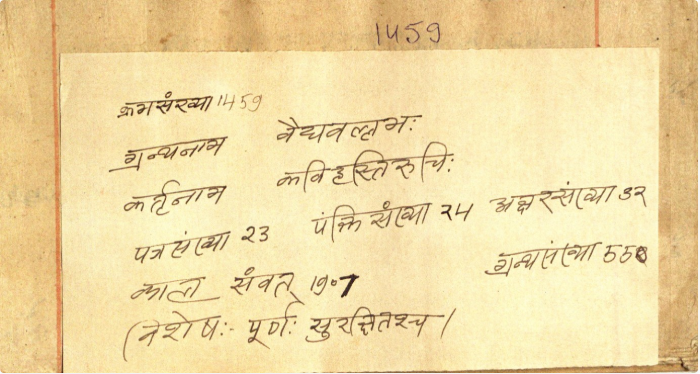 1459
क्रमसंख्या 1459
ग्रन्थनाम वैद्यवल्लभः
कर्तृनाम कविहस्तिरुचिः
पत्रसंख्या 23 पंक्तिसंख्या 24 अक्षरसंख्या 32
काल संवत् 1907 ग्रन्थसंख्या 550
(विशेषः- पूर्णः सुरक्षितश्च)